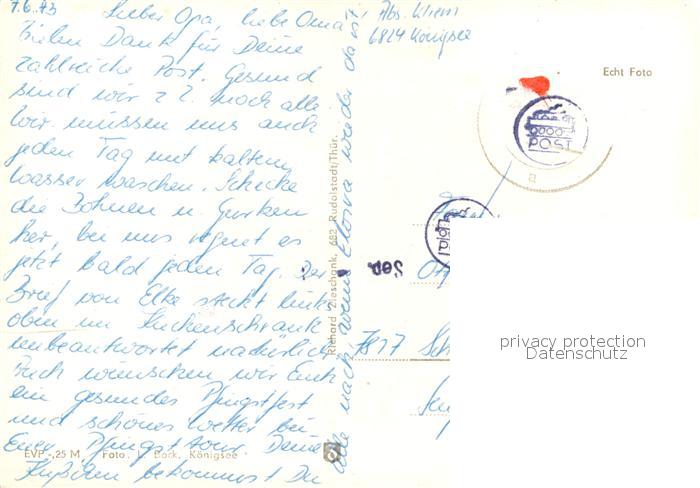 7.6.73
Lieber Opa, liebe Oma!
Vielen Dank für Deine
zahlreiche Post. Gesund
sind wir z Z. noch alle.
Wir müssen uns auch
jeden Tag mit kaltem
Wasser waschen. Schicke
die Bohnen u. Gurken
her, bei uns regnet es
jetzt bald jeden Tag. Der
Brief von Elke steckt links
oben im Küchenschrank
unbeantwortet natürlich
Euch wünschen wir Euch
ein gesundes Pfingstfest
und schönes Wetter bei
Eurer Pfingsttour. Deine
bekommst Du
alle nach, wenn wieder da ist.
Abs. Kliem
6824 Königsee
Echt Foto
POST
a
7817 Sch
Richard Zieschank, 682 Rudolstadt/Thür.
EVP -,25 M Foto: L. Bock, Königsee
privacy protection
Datenschutz